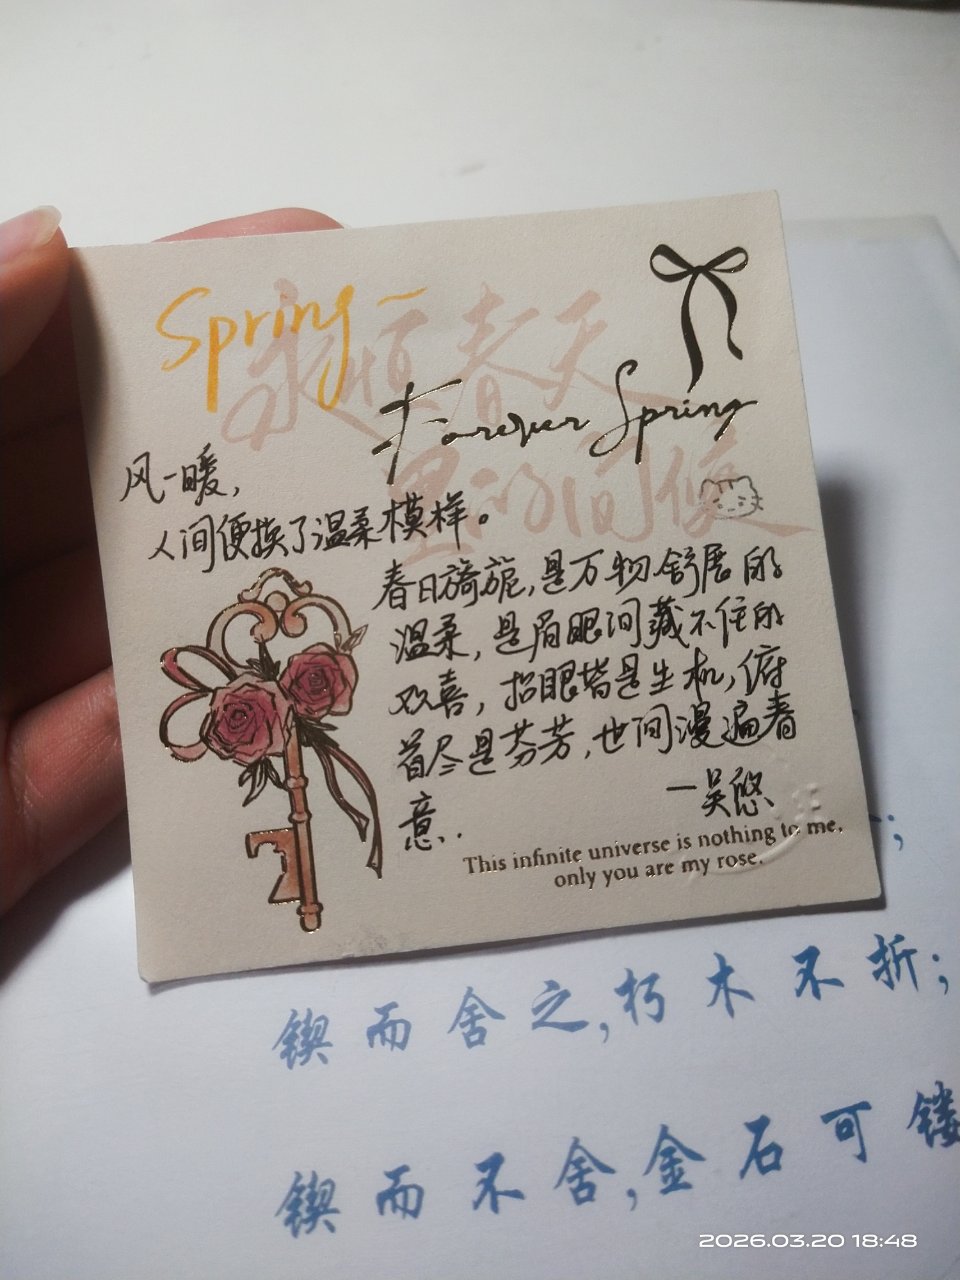 Spring~
永恒春天
Forever Spring
里的间便
风一暖,
人间便换了温柔模样。
春日旖旎,是万物舒展的
温柔,是眉眼间藏不住的
欢喜,抬眼皆是生机,俯
首尽是芬芳,世间漫遍春
意..
一吴悠
This infinite universe is nothing to me,
only you are my rose.
锲而舍之,朽木不折;
锲而不舍,金石可镂
2026.03.20 18:48